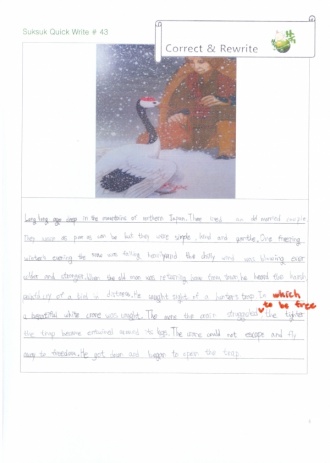 Suksuk Quick Write # 43
Correct & Rewrite
Long long ago deep in the mountains of northern Japan. There lived an old married couple.
They were as poor as can be but they were simple, kind and gentle. One freezing
winter's evening the snow was falling heavily and the chilly wind was blowing ever
wilder and stronger. When the old man was returning home from town he heard the harsh
of a bird in distance. He caught sight of a hunter's trap In which
a beautiful white crane was caught. The more the crain struggled to be free the tighter
the trap became entwined around its legs. The crane could not escape and fly
away to freedom. He got down and began to open the trap